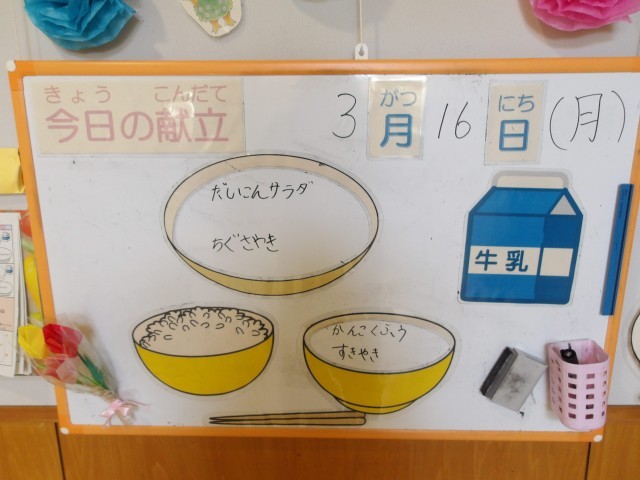 きょう こんだて
今日の献立
がつ にち
3月16日(月)
だいこんサラダ
ちぐさやき
牛乳
かんこくふう
すきやき